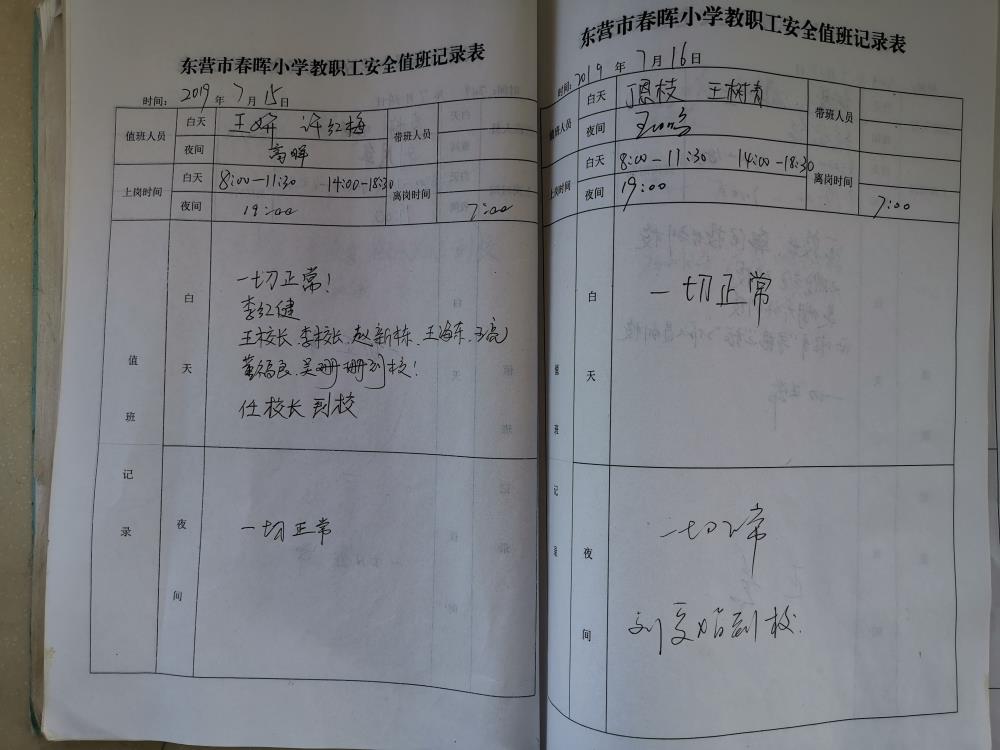 东营市春晖小学教职工安全值班记录表
时间: 2019 年 7 月 15 日
值班人员 白天 王妍 许红梅 带班人员 白天
夜间 高晖 夜间
上岗时间 白天 8:00-11:30 14:00-18:30 离岗时间 白天
夜间 19:00 夜间 7:00
值班记录
白天
一切正常!
李红健
王校长、李校长、赵新栋、王海东、王亮
董福良、吴珊珊到校!
任校长到校
夜间
一切正常
东营市春晖小学教职工安全值班记录表
时间: 2019 年 7 月 16 日
值班人员 白天 丁恩枝 王树青 带班人员 白天
夜间 夜间
上岗时间 白天 8:00-11:30 14:00-18:30 离岗时间 白天
夜间 19:00 夜间 7:00
值班记录
白天
一切正常
夜间
一切正常
到校